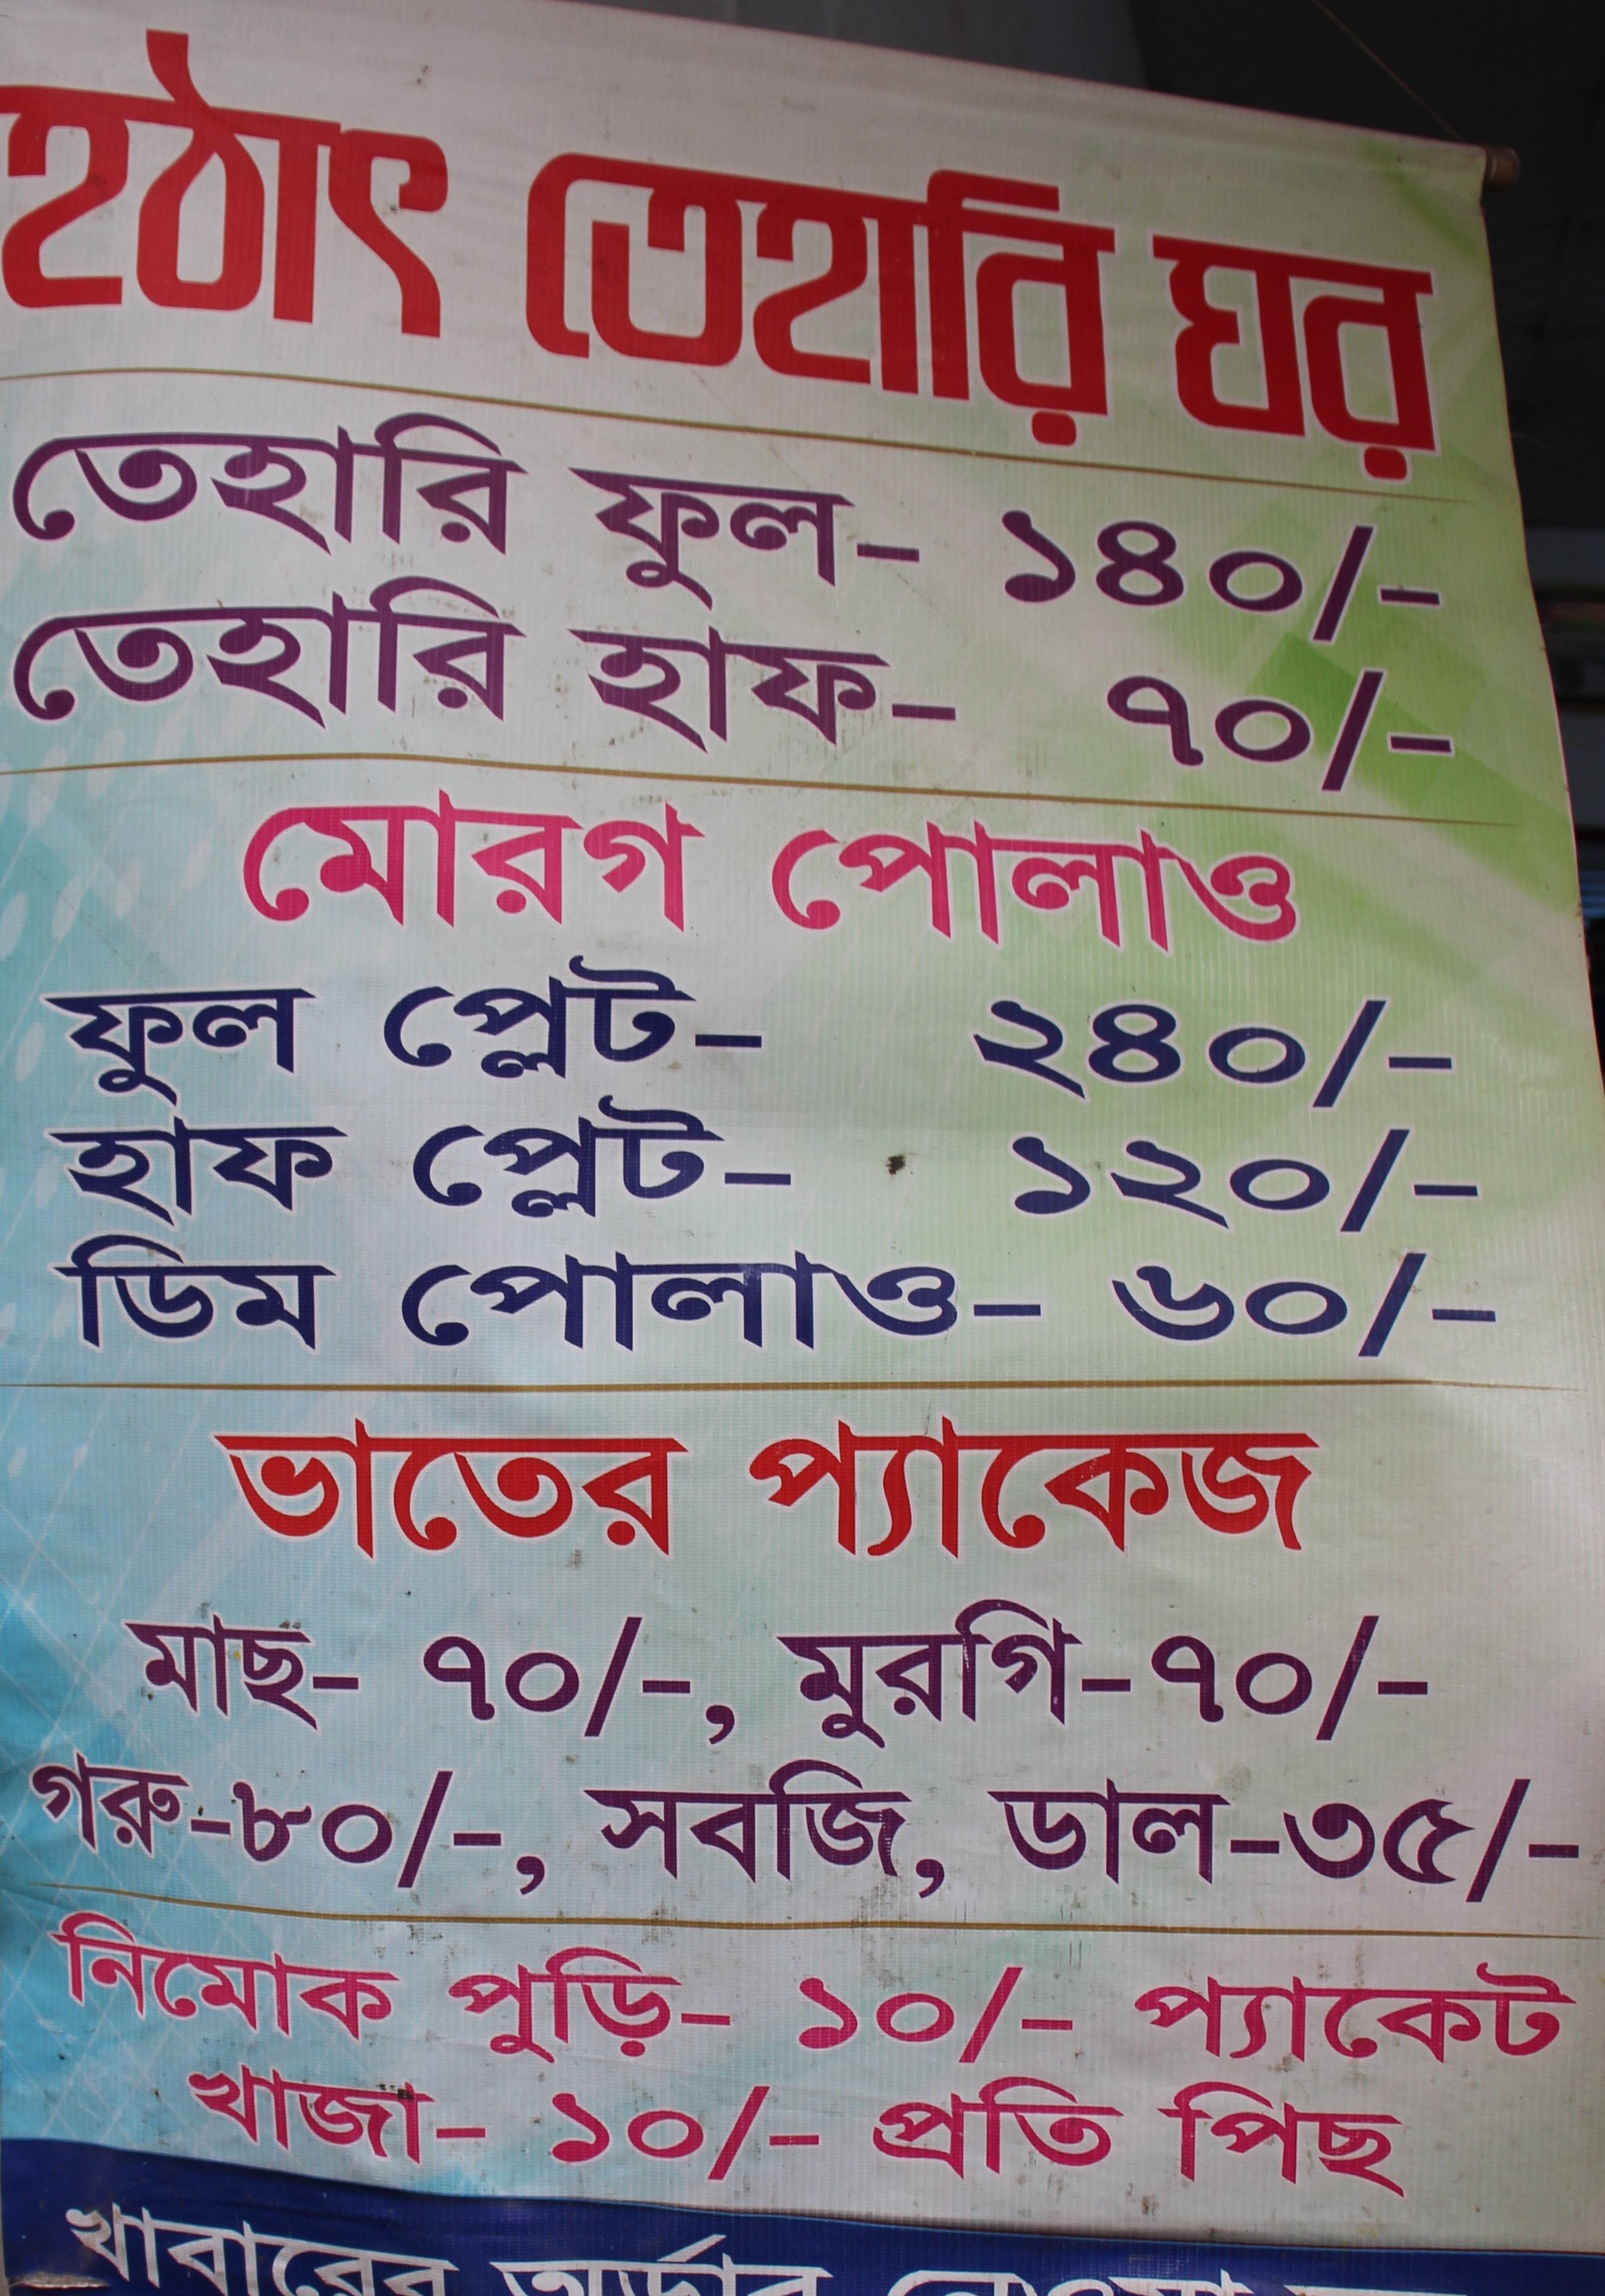 হঠাৎ তেহারি ঘর
তেহারি ফুল- ১৪০/-
তেহারি হাফ- ৭০/-
মোরগ পোলাও
ফুল প্লেট- ২৪০/-
হাফ প্লেট- ১২০/-
ডিম পোলাও- ৬০/-
ভাতের প্যাকেজ
মাছ- ৭০/-, মুরগি-৭০/-
গরু-৮০/-, সবজি, ডাল-৩৫/-
নিমোক পুড়ি- ১০/- প্যাকেট
খাজা- ১০/- প্রতি পিছ
খাবারের অর্ডার নেওয়া